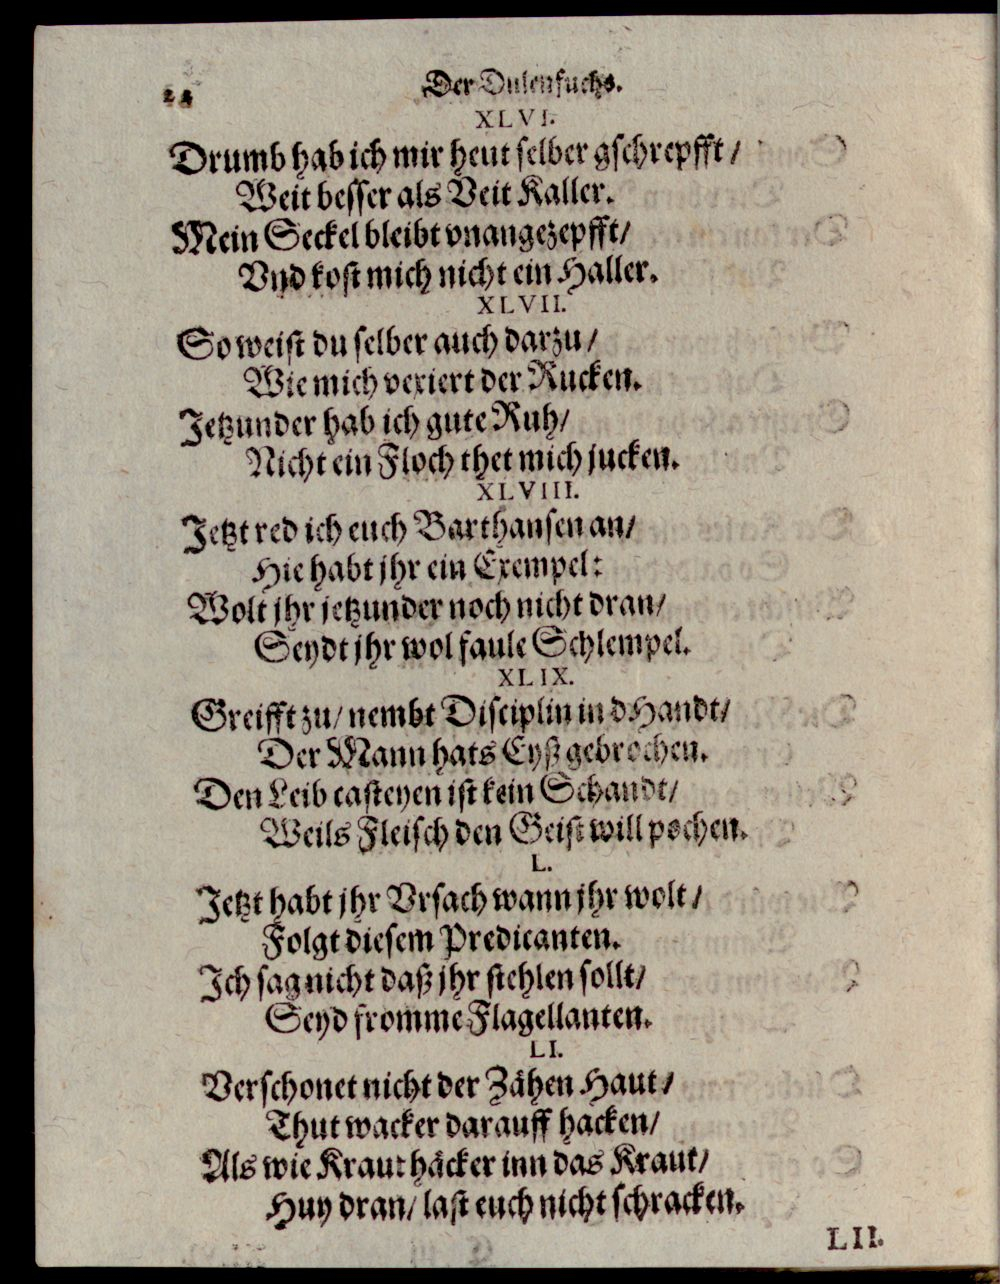 24 Der Dulenfuchs.
XLVI.
Drumb hab ich mir heut selber gschrepfft /
Weit besser als Veit Kaller.
Mein Seckel bleibt vnangezepfft/
Vnd kost mich nicht ein Haller.
XLVII.
So weist du selber auch darzu /
Wie mich vexiert der Rucken.
Jetzunder hab ich gute Ruh/
Nicht ein Floch thet mich jucken.
XLVIII.
Jetzt red ich euch Barthansen an/
Hie habt jhr ein Exempel:
Wolt jhr jetzunder noch nicht dran/
Seydt jhr wol faule Schlempel.
XLIX.
Greifft zu/ nembt Disciplin in d Handt/
Der Mann hats Eyß gebrochen.
Den Leib casteyen ist kein Schandt/
Weils Fleisch den Geist will pochen.
L.
Jetzt habt jhr Vrsach wann jhr wolt /
Folgt diesem Predicanten.
Ich sag nicht daß jhr stehlen sollt/
Seyd fromme Flagellanten.
LI.
Verschonet nicht der Zähen Haut /
Thut wacker darauff hacken/
Als wie Krauthäcker inn das Kraut/
Huy dran/ last euch nicht schracken.
LII.